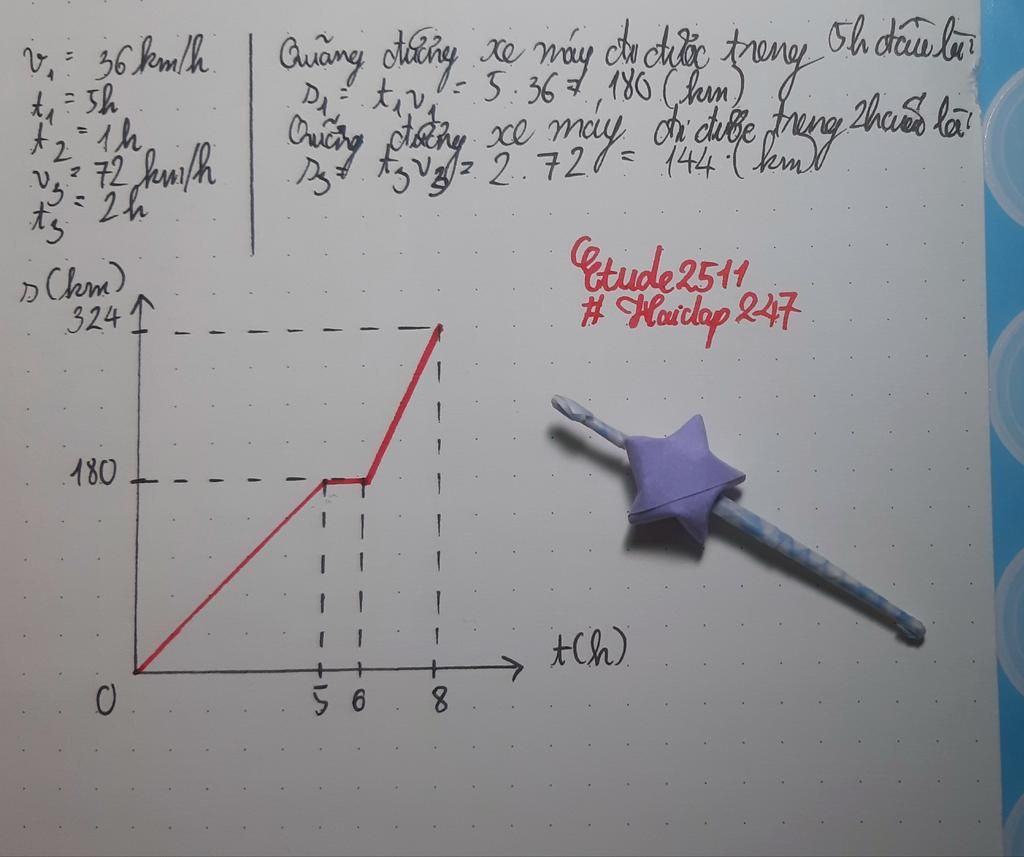 v₁ = 36 km/h
t₁ = 5h
t₂ = 1h
v₃ = 72 km/h
t₃ = 2h
Quãng đường xe máy đi được trong 5h đầu là:
s₁ = t₁v₁ = 5.36 = 180 (km)
Quãng đường xe máy đi được trong 2h cuối là:
s₃ = t₃v₃ = 2.72 = 144 (km)
Etude2511
# Hoidap247
s(km)
324
180
t(h)
0 5 6 8